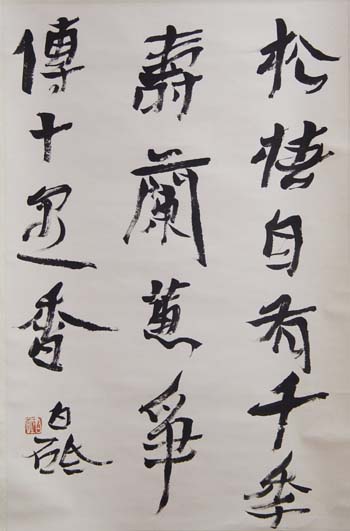 松梧自有千年
壽蘭蕙爭
傳十里香
白砥